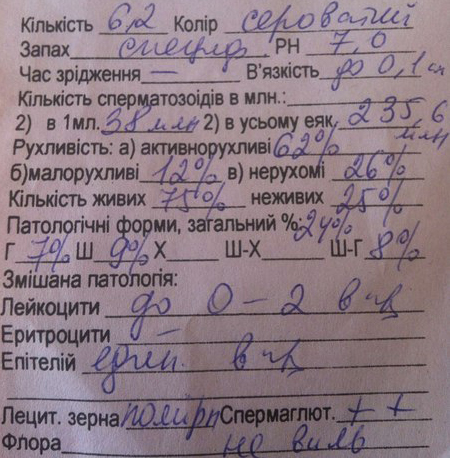 Кількість 6,2 Колір сероватий
Запах специф. РН 7,0
Час зрідження — В'язкість до 0,1 см
Кількість сперматозоїдів в млн.:
2) в 1мл. 38 млн 2) в усьому еяк. 235,6 млн
Рухливість: а) активнорухливі 62%
б)малорухливі 12% в) нерухомі 26%
Кількість живих 75% неживих 25%
Патологічні форми, загальний %: 24%
Г 7% Ш 9% Х Ш-Х Ш-Г 8%
Змішана патологія:
Лейкоцити до 0 - 2 в
Еритроцити —
Епітелій един. в
Лецит. зерна Спермаглют. + +
Флора не